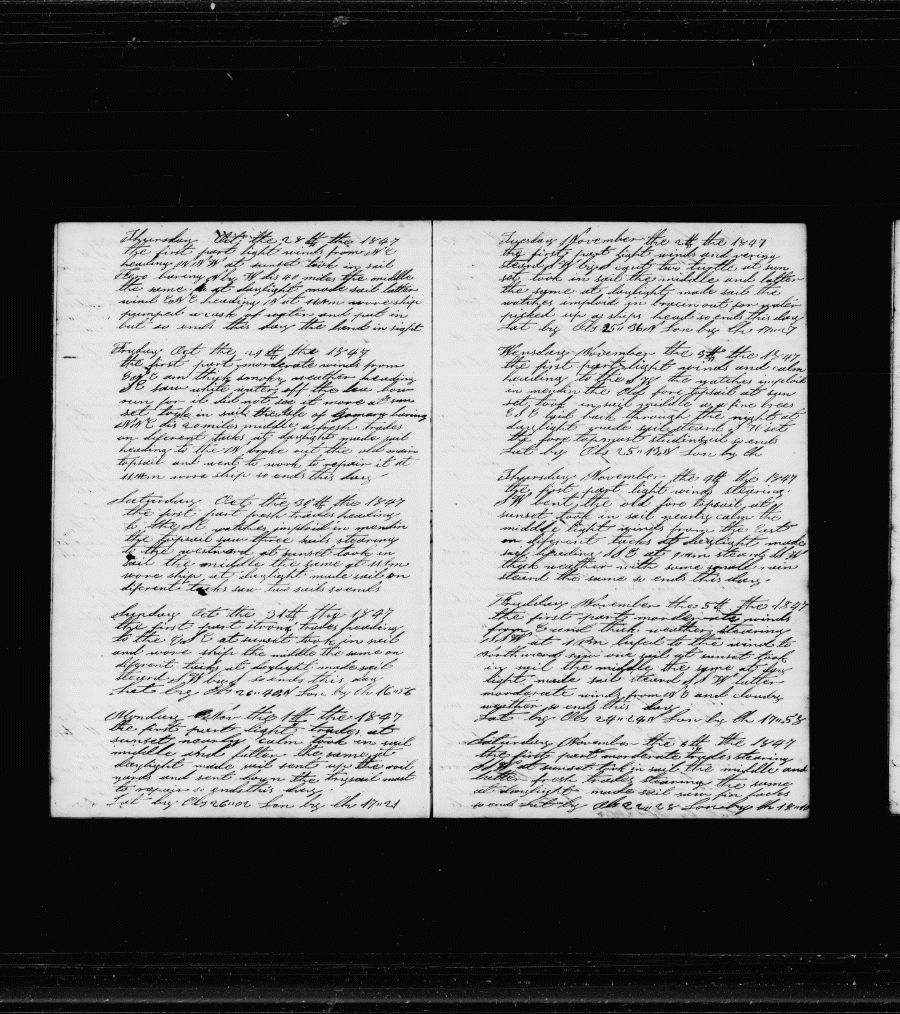 Thursday Oct the 28th the 1847
the first part light winds from NE
heading NNW at sunset took in sail
Faro baring N by W dis 40 miles the middle
the same at daylight made sail latter
wind ENE heading N at 11 am wore ship
pumped a cask of water and put in
but so ends this day the land in sight
Fryday Oct the 29th the 1847
the first part morderate winds from
and thick smoky weather heading
SE saw white waters off the lee bow
run for it did not see it more at sun
set took in sail the Isle of Gomary baring
NNE dis 20 miles middle fresh trades
on diferent tacks at daylight made sail
heading to the N broke out the old main
topsail and went to work to repair it at
11 am wore ship so ends this day
Saturday Oct the 30th the 1847
the first part fresh trades heading
to the SE watches imploid in mendin
the topsail saw three sails stearing
to the westward at sunset took in
sail the middle the same at 11 pm
wore ship at daylight made sail on
diferent tacks saw two sails so ends
Sunday Oct the 31th the 1847
the first part strong trades heading
to the ESE at sunset took in sail
and wore ship the middle the same on
diferent tacks at daylight made sail
steard SW by S so ends this day
Lat by Obs 26"40N Lon by Ch 16"56
Monday Nov the 1th the 1847
the first part light trades at
sunset nearly calm took in sail
middle and latter the same at
daylight made sail sent up the sail
yards and sent down the trysail mast
to repair so ends this day
Lat by Obs 26"02 Lon by Ch 17"21
Tuesday November the 2th the 1847
the first part light winds and vering
steard SW by S caut two turtle at sun
set took in sail the middle and latter
the same at daylight made sail the
watches imploid in breakin out for water
picked up a ships head so ends this day
Lat by Obs 25"36N Lon by Ch 17"27
Wensday November the 3th the 1847
the first part light winds and calm
heading to the SW the watches imploid
in mendin the old fore topsail at sun
set took in sail middle a fine breeze
ESE laid back through the night at
daylight made sail steard SW set
the fore topmast studinsail so ends
Lat by Obs 25"13N Lon by Ch
Thursday November the 4th the 1847
the first part light winds stearing
SW bent the old fore topsail at
sunset took in sail nearly calm the
middle light winds from the East
on diferent tacks at daylight made
sail heading SSE at 9 am steard SSW
thick weather with some small rain
steard the same so ends this day
Frydday November the 5th the 1847
the first part morderate winds
from E and thick weather stearing
SSW at 1 PM lufed to the wind to
Northward saw one sail at sunset took
in sail the middle the same at day
light made sail steard SSW latter
morderate winds from NE and cloudy
weather so ends this day
Lat by Obs 24"24N Lon by Ch 17"58
Saturday November the 6th the 1847
the first part morderate trades stearing
SSW at sunset took in sail the middle and
latter fresh trades stearing the same
at daylight made sail saw fin backs
so ends Lat by Obs 22"28 Lon by Ch 18"10